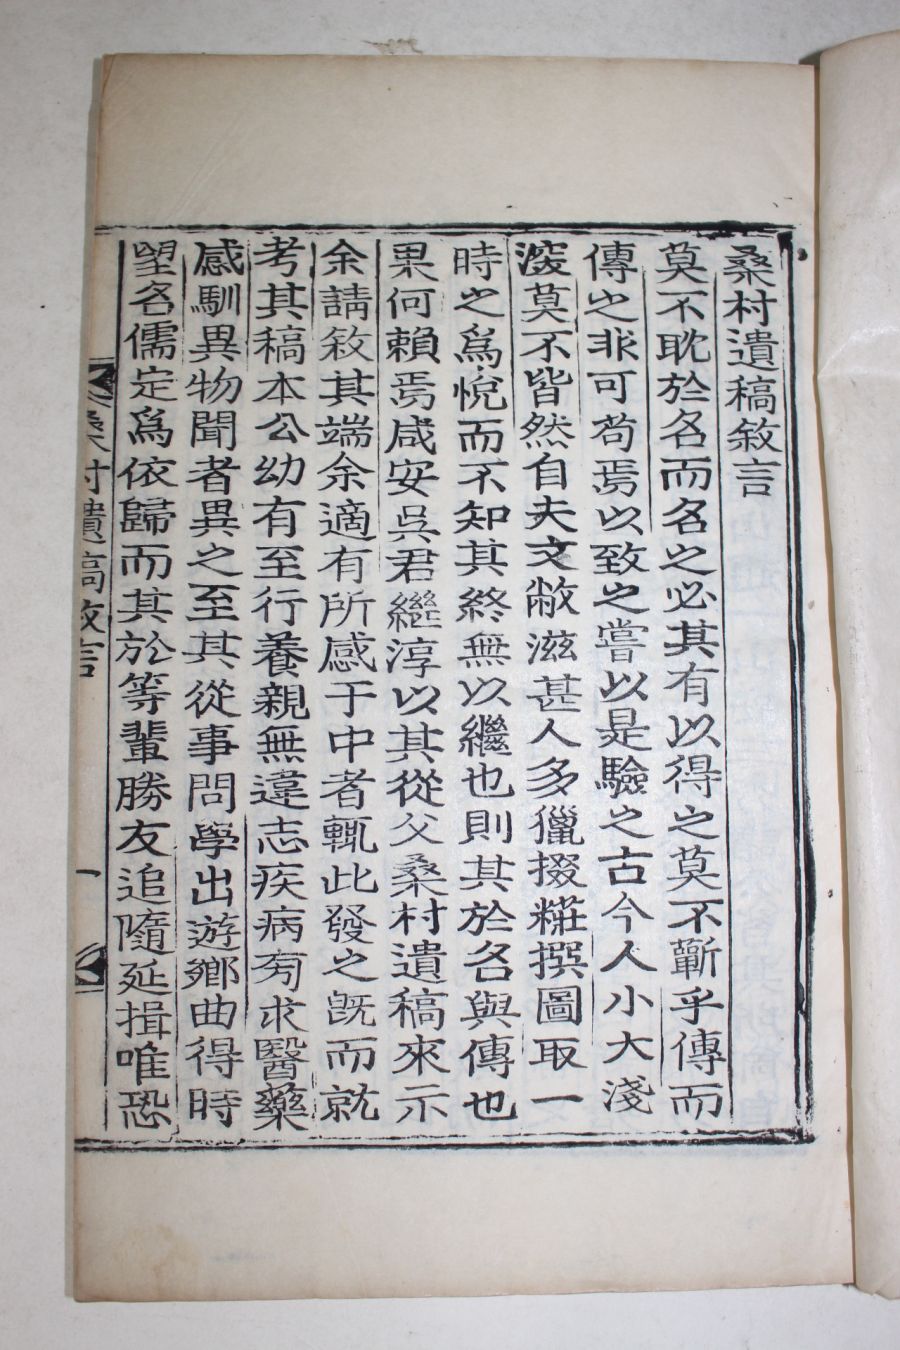 桑村遺稿敘言
莫不耽於名而名之必其有以得之莫不蘄乎傳而
傳之非可苟焉以致之嘗以是驗之古今人小大淺
深莫不皆然自夫文敝滋甚人多獵掇糚撰圖取一
時之爲悅而不知其終無以繼也則其於名與傳也
果何賴焉咸安吳君繼淳以其從父桑村遺稿來示
余請敘其端余適有所感于中者輒此發之旣而就
考其稿本公幼有至行養親無違志疾病旁求醫藥
感馴異物聞者異之至其從事問學出遊鄉曲得時
望名儒定爲依歸而其於等輩勝友追隨延揖唯恐
桑村遺稿敘言 一